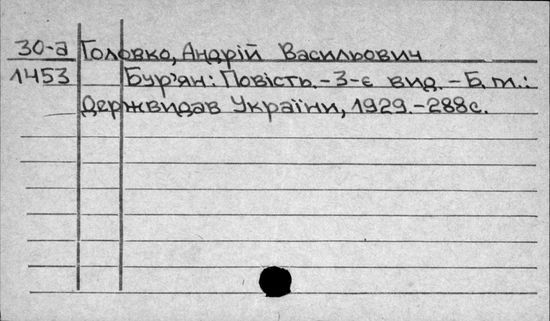 30-а Головко, Андрій Васильович
1453 Бур'ян: Повість. - 3-є вид. - Б.м.:
Держвидав України, 1929. - 288с.